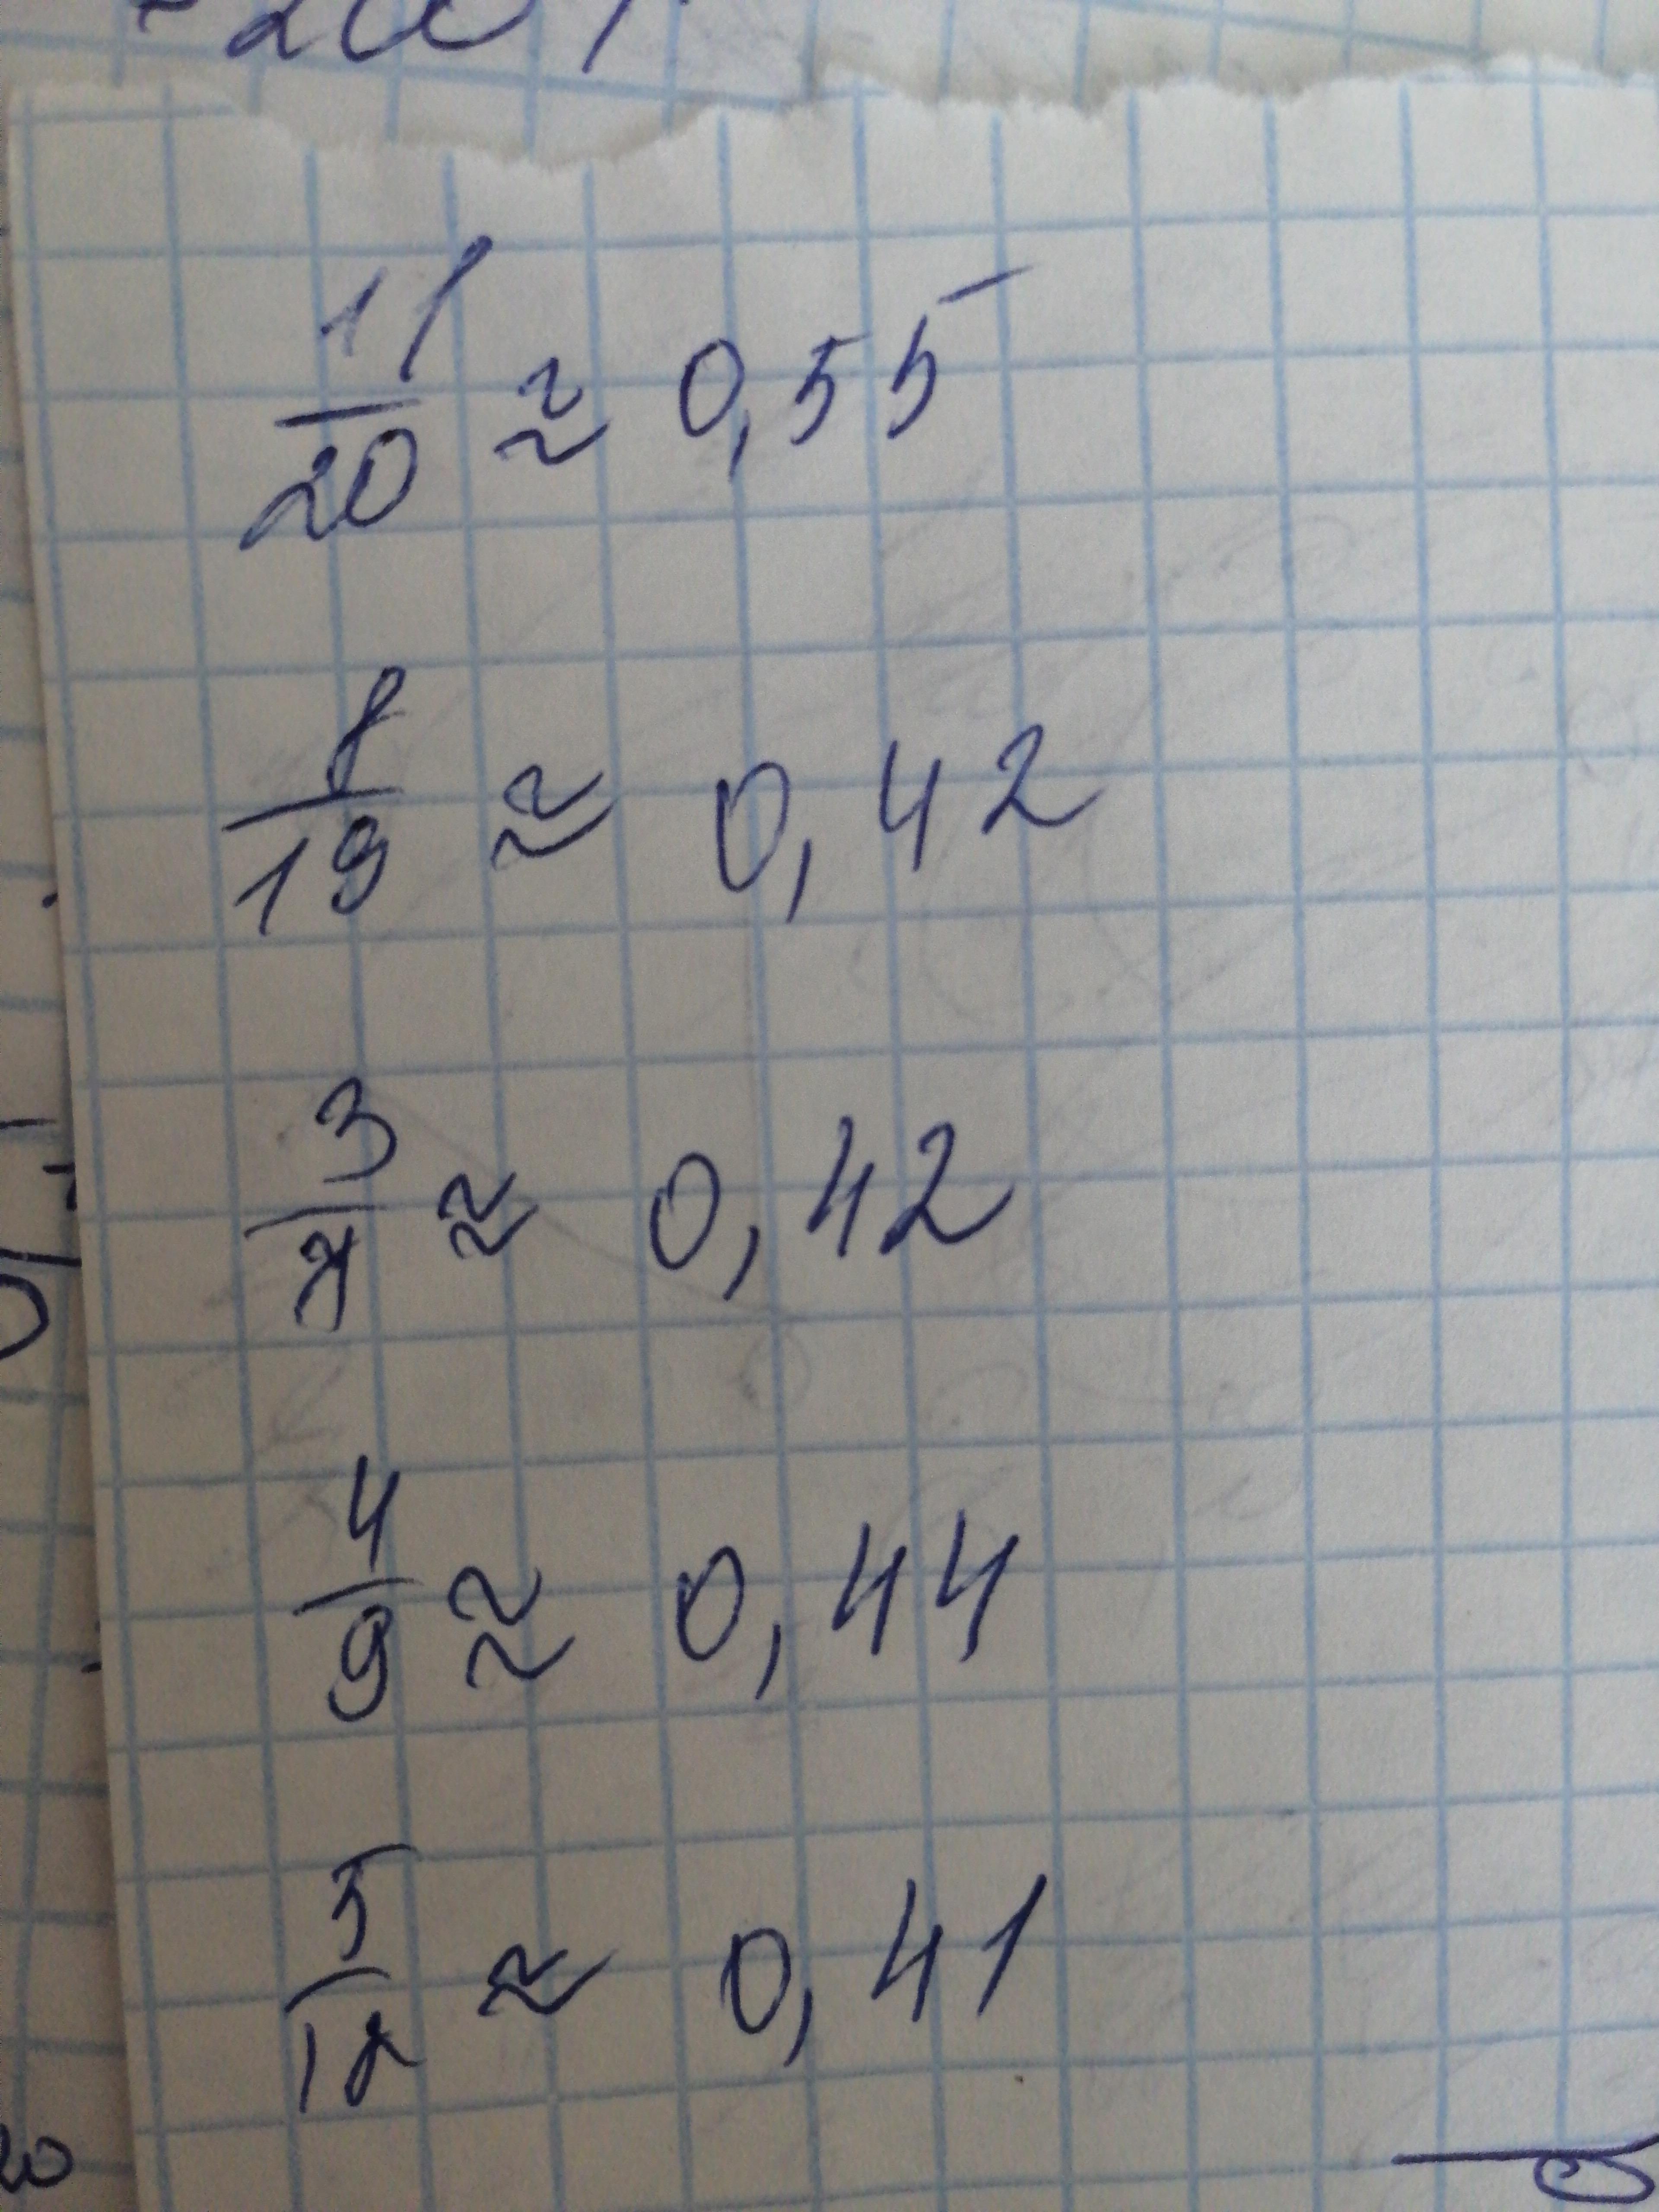 11/20 ≈ 0,55
8/19 ≈ 0,42
3/7 ≈ 0,42
4/9 ≈ 0,44
5/12 ≈ 0,41
20